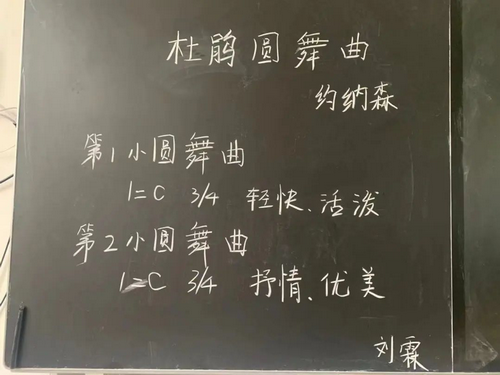 杜鹃圆舞曲
约纳森
第1小圆舞曲
1=C 3/4 轻快、活泼
第2小圆舞曲
1=C 3/4 抒情、优美
刘霖